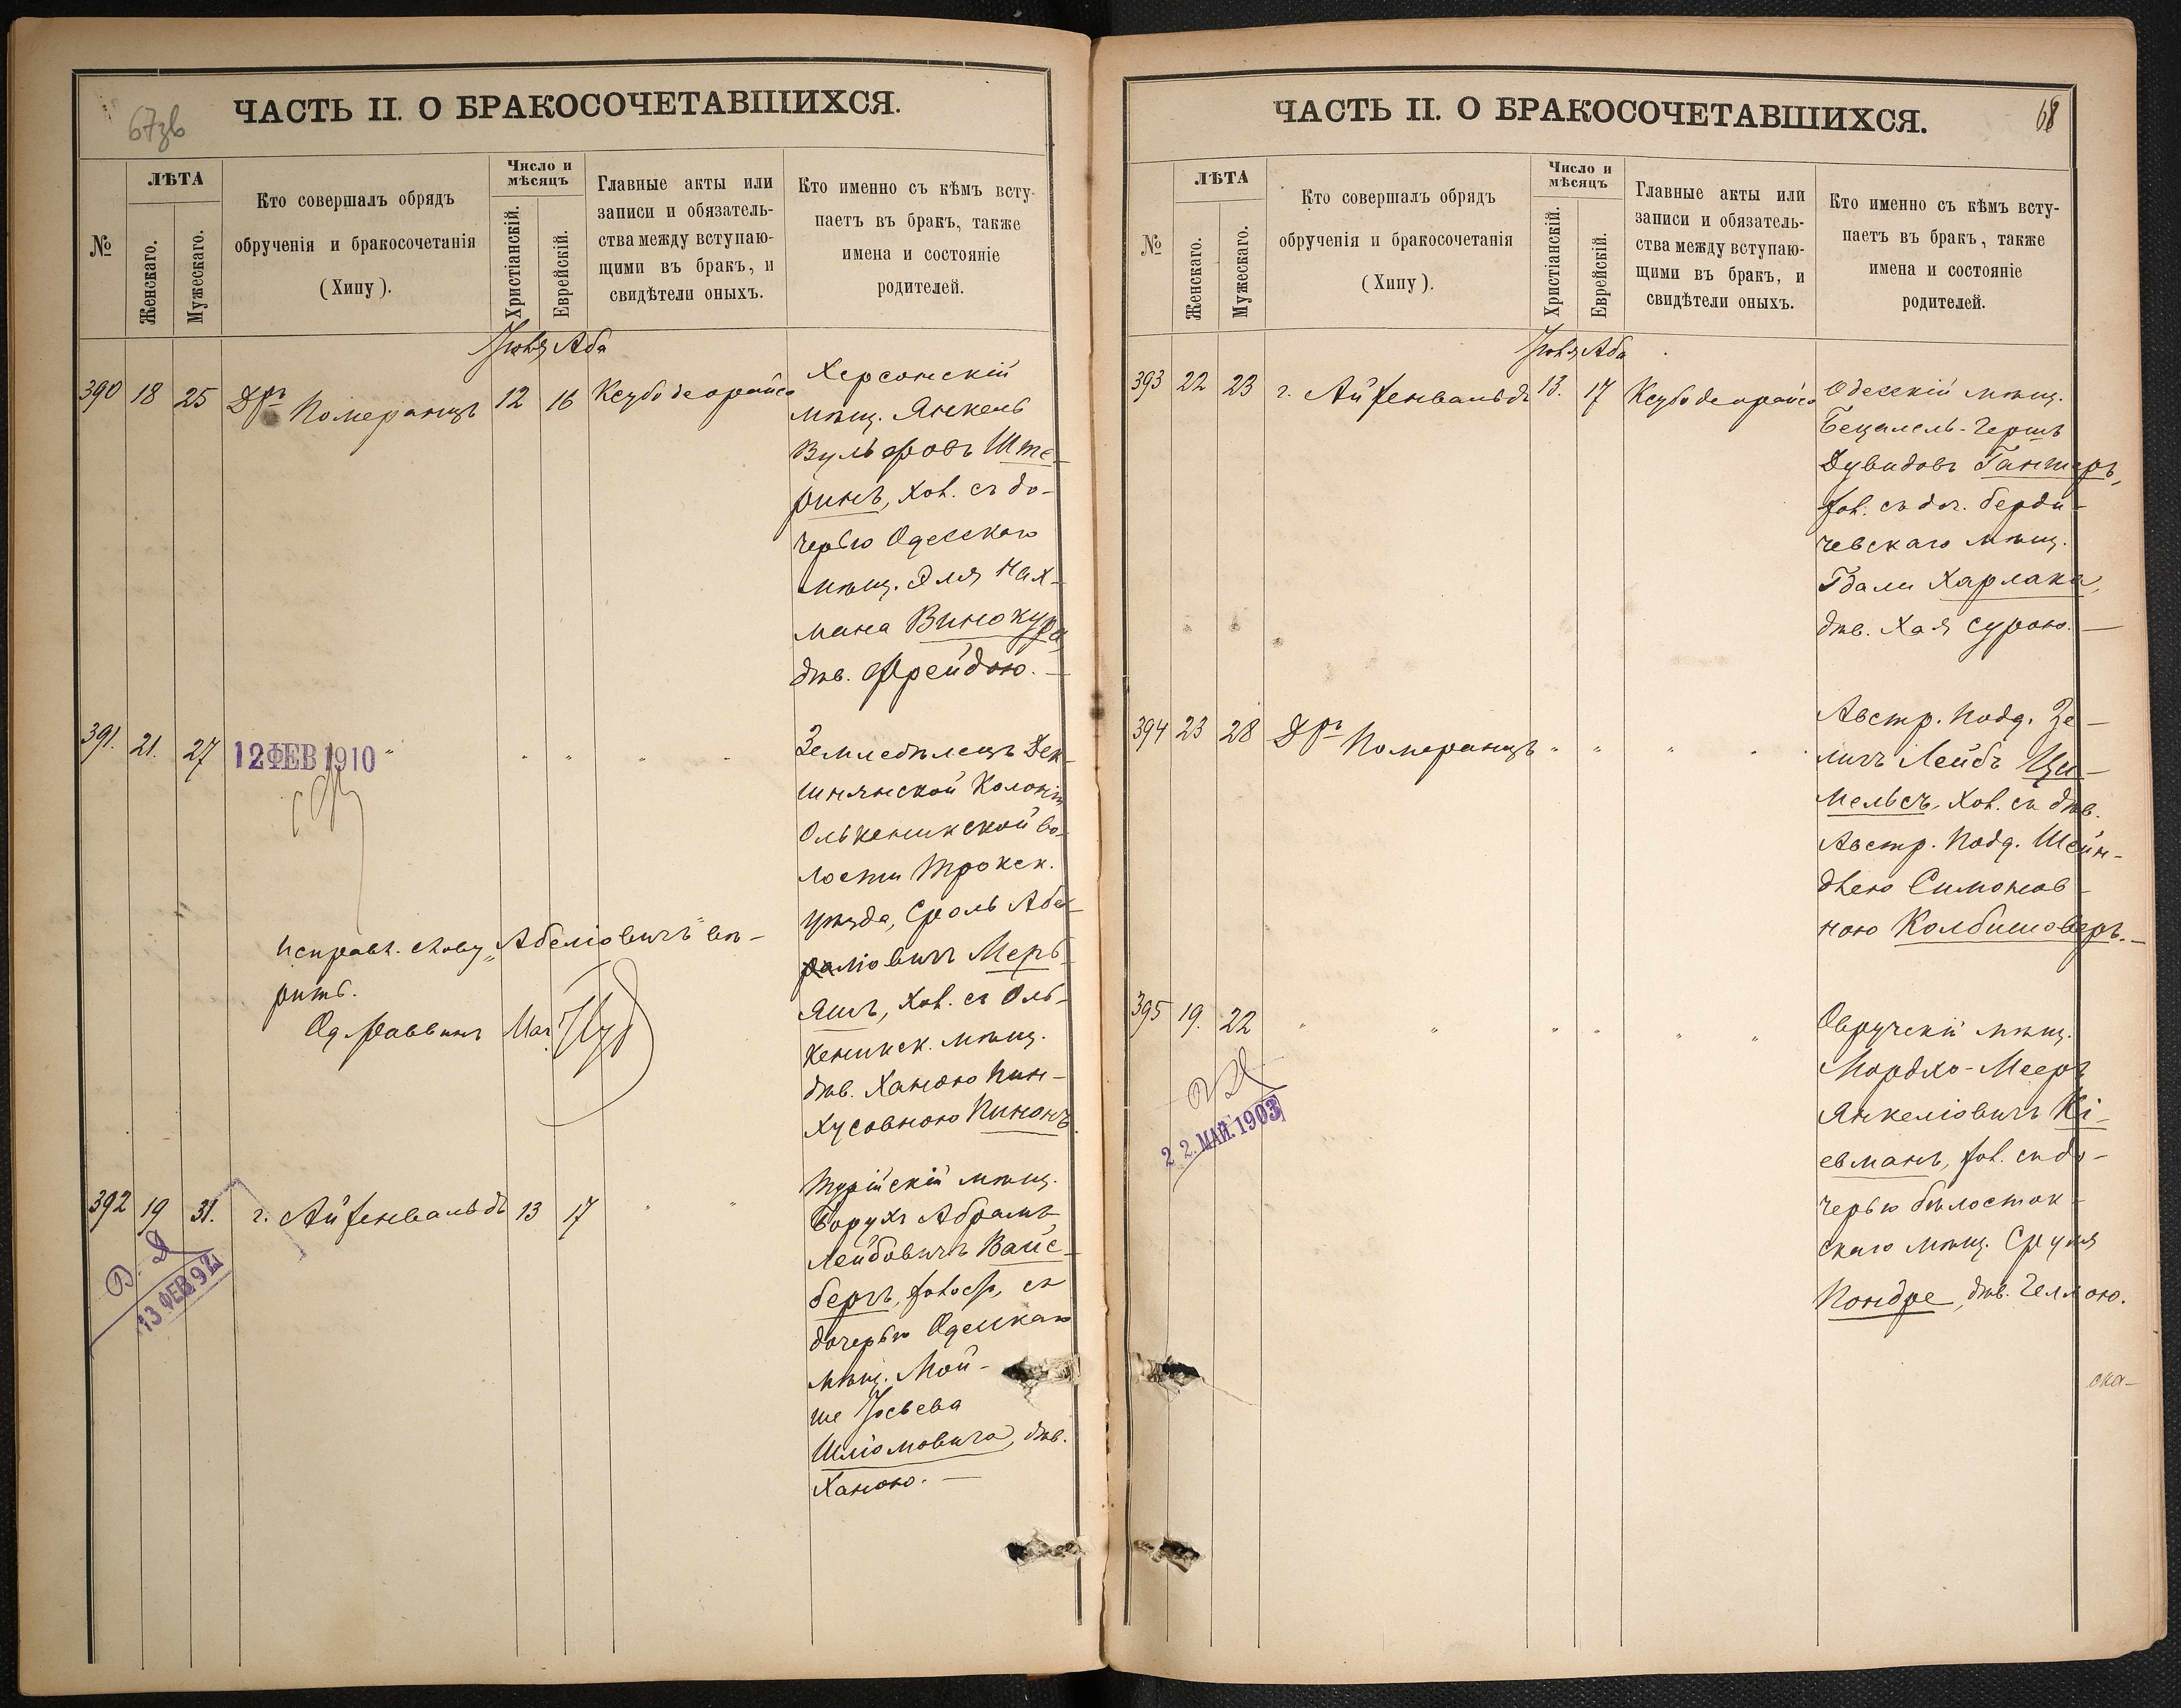 67зв
ЧАСТЬ II. О БРАКОСОЧЕТАВШИХСЯ.
№
ЛѢТА
Женскаго.
Мужескаго.
Кто совершалъ обрядъ
обрученія и бракосочетанія
(Хипу).
Число и
мѣсяцъ
Христіанскій.
Еврейскій.
Главные акты или
записи и обязатель-
ства между вступаю-
щими въ бракъ, и
свидѣтели оныхъ.
Кто именно съ кѣмъ всту-
паетъ въ бракъ, также
имена и состояніе
родителей.
Іюля Аба
390 18 25 Дръ Померанцъ 12 16 Ксубо деорайсо
Херсонскій
мѣщ. Янкель
Вульфовъ Ште-
ринъ, хол. съ до-
черью Одесскаго
мѣщ. Эля Нах-
мана Винокура,
дѣв. Фрейдою. —
391. 21. 27 " " " " "
12 ФЕВ 1910
Земледѣлецъ Дек-
шнянской Колоніи
Олькеникской во-
лости Трокск.
уѣзда, Сроль Абе-
ліовичъ Мерь-
яшъ, хол. съ Оль-
кеникск. мѣщ.
дѣв. Ханою Пин-
хусовною Пинонъ.
Исправл. слову "Абеліовичъ" вѣ-
рить.
Од. Раввинъ
392 19 31. г. Айзенвальдъ 13 17 " "
В. Д
13 ФЕВ 9
Турійскій мѣщ.
Борухъ Абрамъ
Лейбовичъ Вайс-
бергъ, холост, съ
дочерью Одесскаго
мѣщ. Мой-
ше Іосьева
Шліомовича, дѣв.
Ханою. —
68
ЧАСТЬ II. О БРАКОСОЧЕТАВШИХСЯ.
№
ЛѢТА
Женскаго.
Мужескаго.
Кто совершалъ обрядъ
обрученія и бракосочетанія
(Хипу).
Число и
мѣсяцъ
Христіанскій.
Еврейскій.
Главные акты или
записи и обязатель-
ства между вступаю-
щими въ бракъ, и
свидѣтели оныхъ.
Кто именно съ кѣмъ всту-
паетъ въ бракъ, также
имена и состояніе
родителей.
Іюля Аба
393 22 23 г. Айзенвальдъ 13. 17 Ксубо деорайсо
Одесскій мѣщ.
Бецалель-Гершъ
Дувидовъ Гантеръ,
хол. съ доч. Берди-
чевскаго мѣщ.
Гдали Харлака,
дѣв. Хая Сурою. —
394 23 28 Дръ Померанцъ " " " "
Австр. подд. Зе-
ликъ Лейбъ Ци-
мельсъ, хол. съ дѣв.
Австр. подд. Шейн-
длею Симонов-
ною Колбишоверъ. —
395 19. 22 " " " " " "
В Д
22. МАЙ. 1903
Овручскій мѣщ.
Мордко-Мееръ
Янкеліовичъ Кі-
евманъ, хол. съ до-
черью Бѣлосток-
скаго мѣщ. Сруля
Пондре, дѣв. Геллою.
ска-